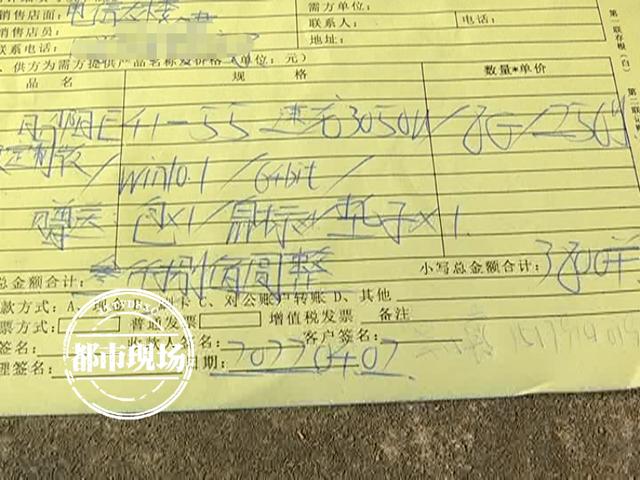 销售店面: 电信大楼
需方单位:
销售店员:
联系人: 电话:
联系电话:
地址:
第一联存根(白)
、供方为需方提供产品名称及价格(单位:元)
品名 规格 数量*单价
E41-55 速龙3050U/8G/256G
定制版/win10.1/64bit/
包×1/鼠标×1/垫子×1.
总金额合计: 叁仟捌佰圆整 小写总金额合计: 3800元
款方式: A、现 刷卡 C、对公账户转账 D、其他
票方式: 普通发票 增值税发票 备注
签名: 收款人签名: 客户签名:
理签名: 日期: 20220402
都市现场